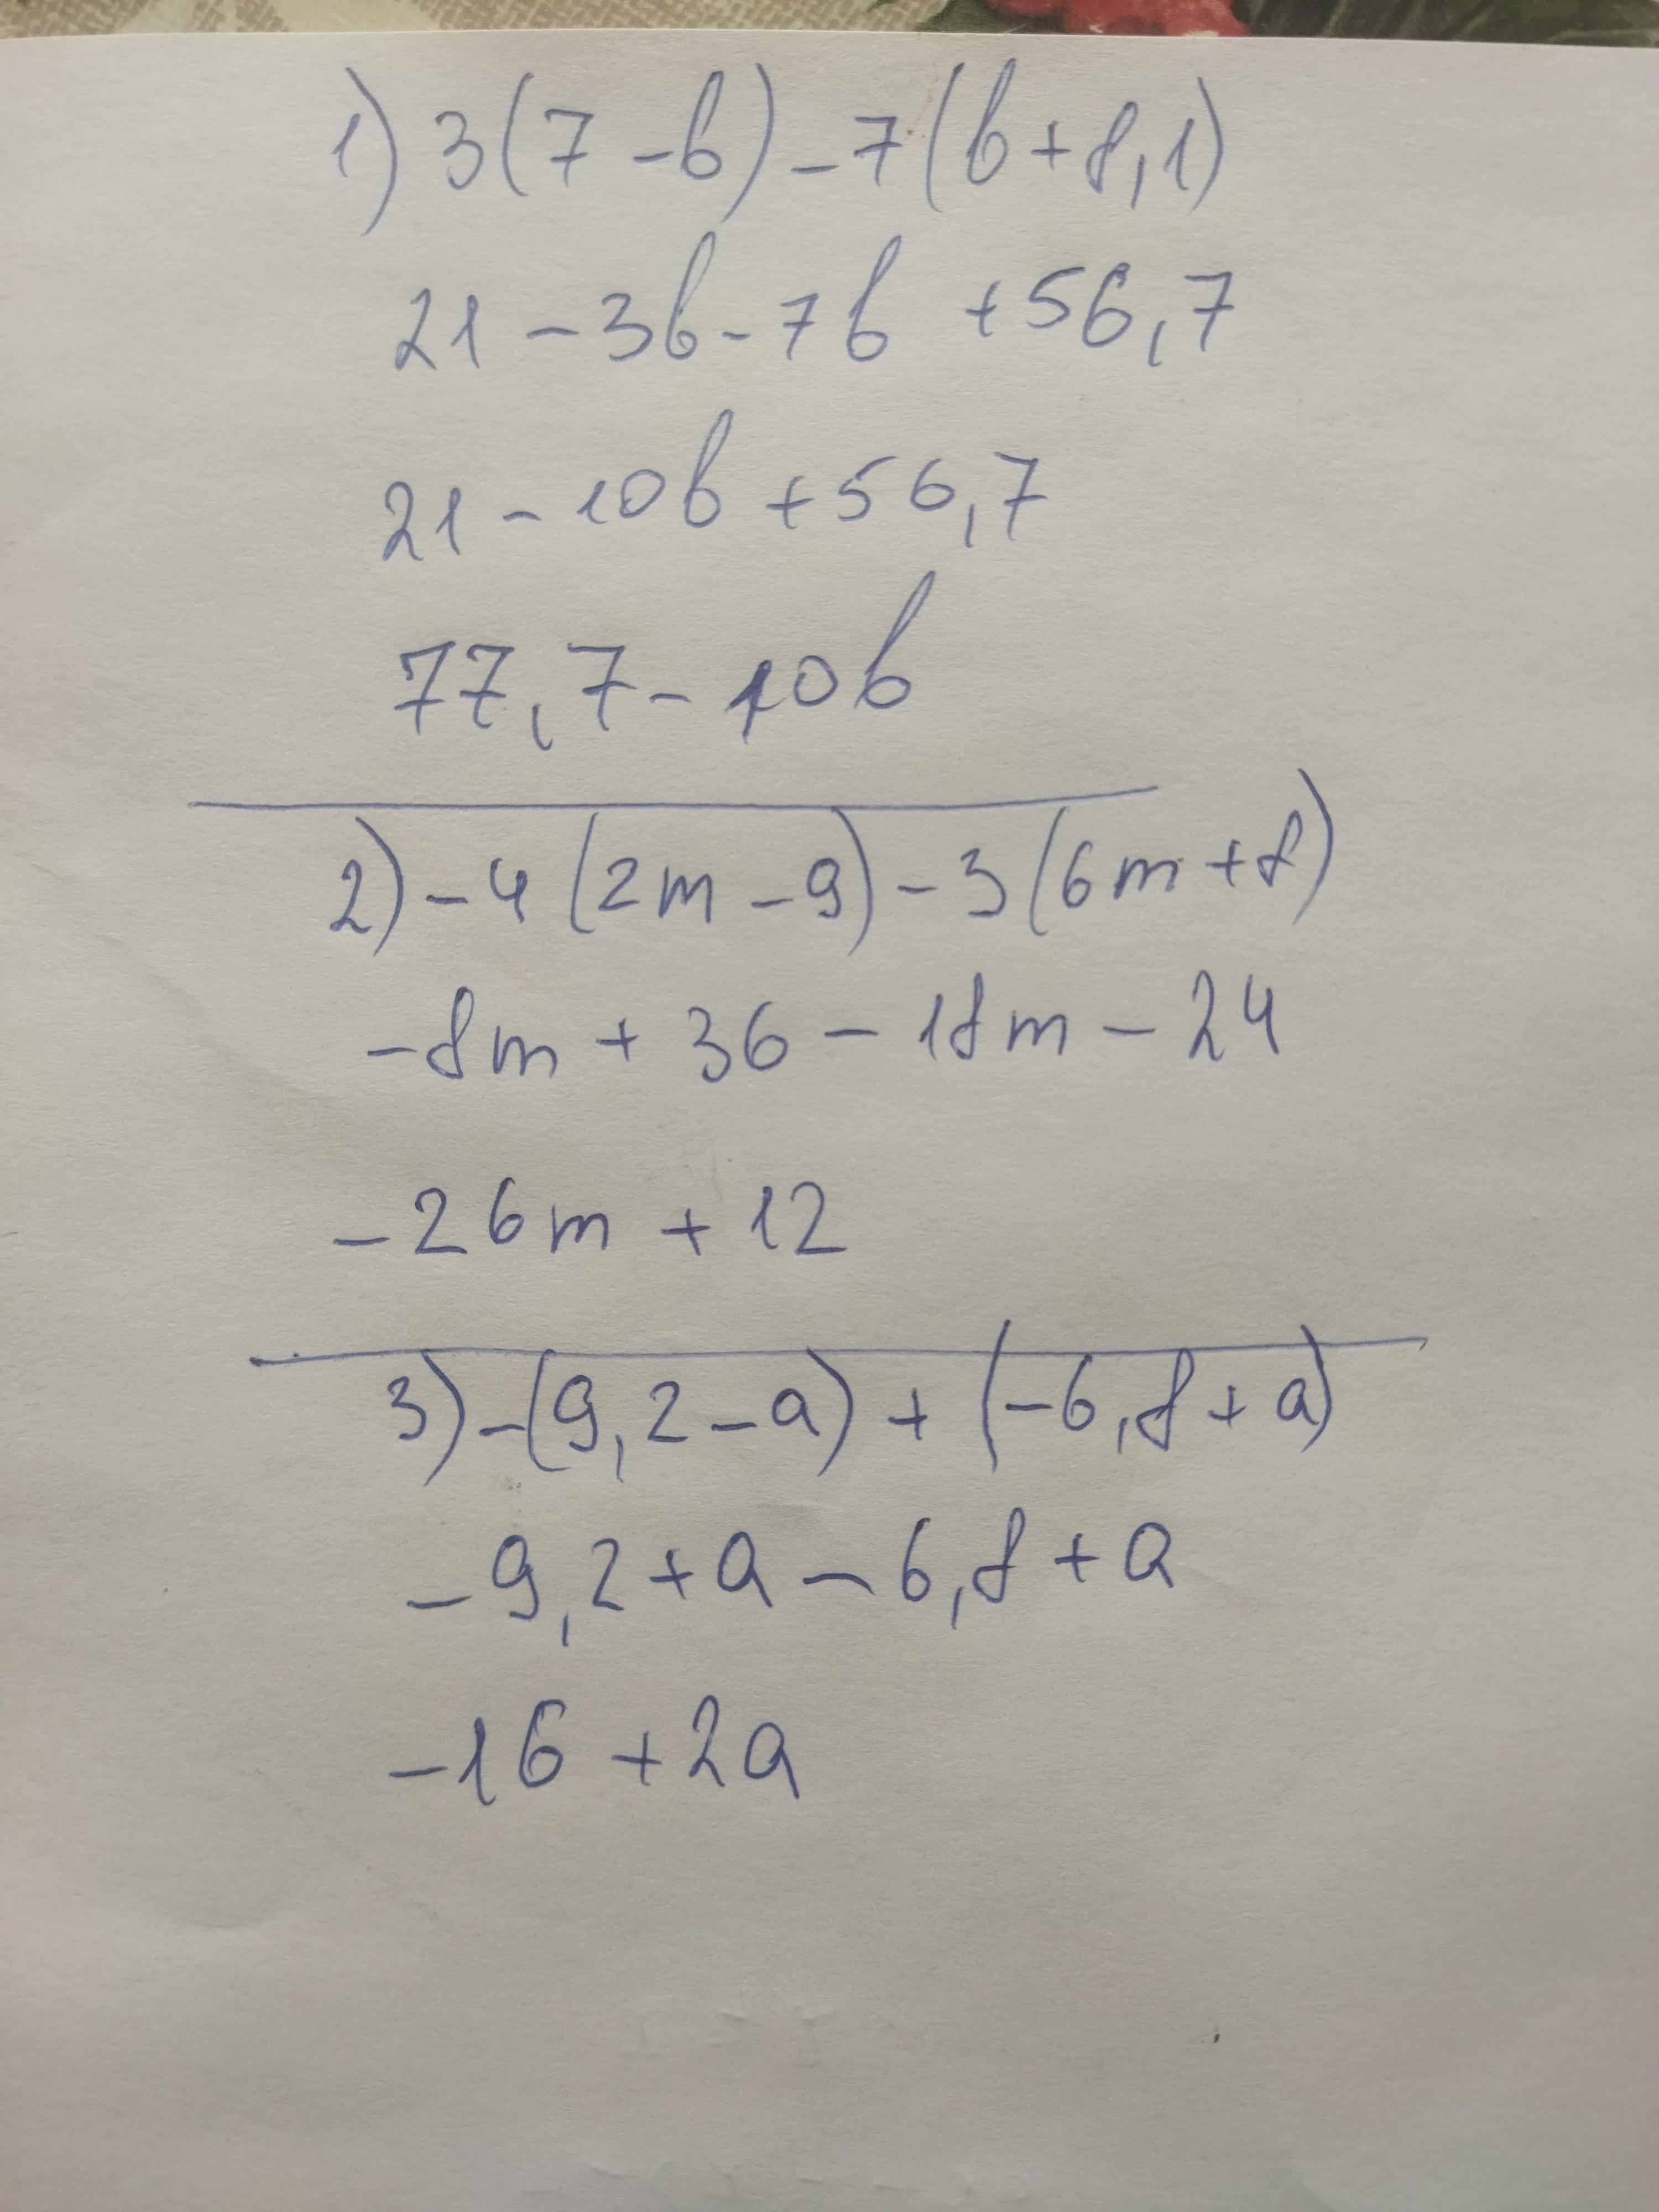 1) 3(7-b)-7(b+8,1)
21-3b-7b+56,7
21-10b+56,7
77,7-10b
2) -4(2m-9)-3(6m+8)
-8m+36-18m-24
-26m+12
3) -(9,2-a)+(-6,8+a)
-9,2+a-6,8+a
-16+2a